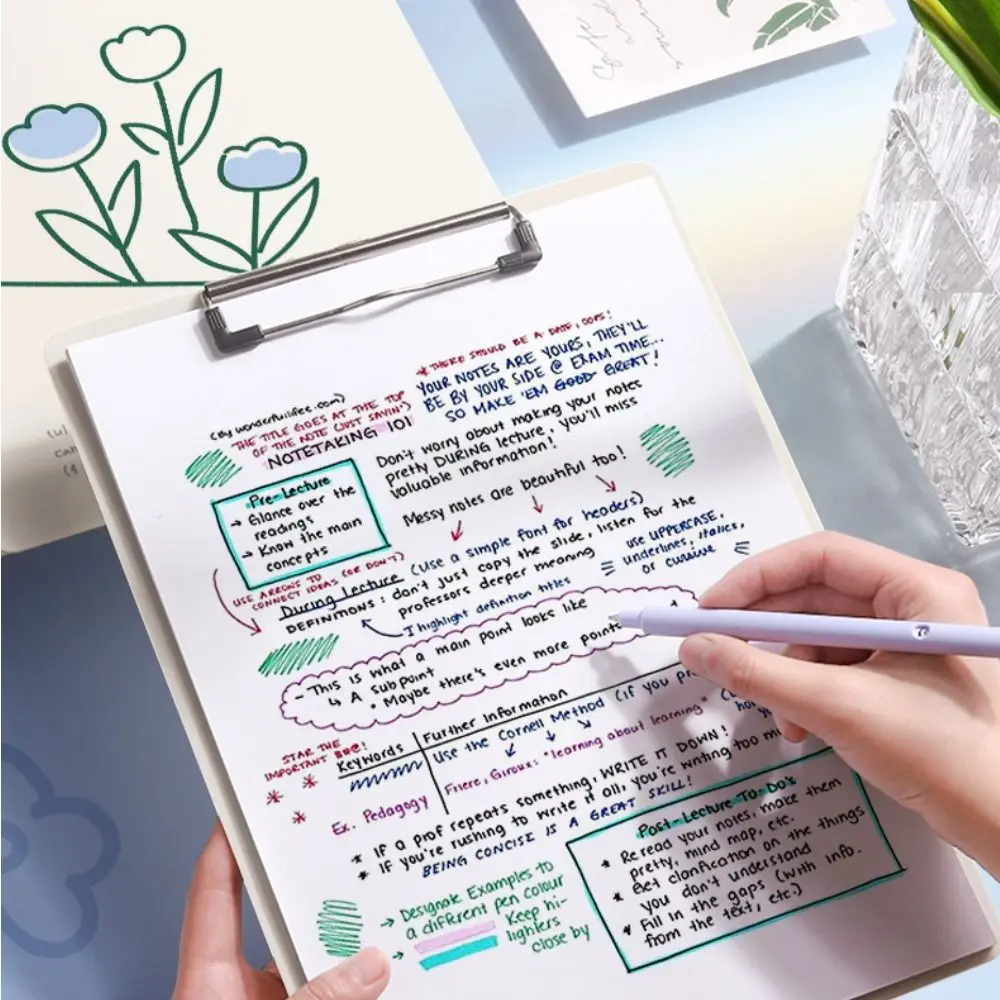 * THERE SHOULD BE A DATE, OOPS!
YOUR NOTES ARE YOURS, THEY'LL
BE BY YOUR SIDE @ EXAM TIME...
SO MAKE 'EM GOOD GREAT!
(by wonderfullifee.com)
THE TITLE GOES AT THE TOP
OF THE NOTE (JUST SAYIN')
NOTETAKING 101
Don't worry about making your notes
pretty DURING lecture, you'll miss
valuable information!
Messy notes are beautiful too!
Pre-Lecture
→ Glance over the
readings
→ Know the main
concepts
USE ARROWS TO
CONNECT IDEAS (OR DON'T)
During Lecture (use a simple font for headers)
DEFINITIONS: don't just copy the slide, listen for the
professors deeper meaning
I highlight definition titles
USE UPPERCASE,
underlines, italics,
or cursive
- This is what a main point looks like
↳ A sub point
• Maybe there's even more points
STAR THE
IMPORTANT
Keywords
Further Information
Use the Cornell Method (if you
Ex. Pedagogy
Friere, Giroux: "learning about learning"
* If a prof repeats something, WRITE IT DOWN!
* If you're rushing to write it all, you're writing too
BEING CONCISE IS A GREAT SKILL!
→ Designate Examples to
a different pen colour
→ Keep hi-
lighters
close by
Post-Lecture To-Do's
* Reread your notes, make them
pretty, mind map, etc.
* Get clarification on the things
you don't understand
* Fill in the gaps (with info.
from the text, etc.)